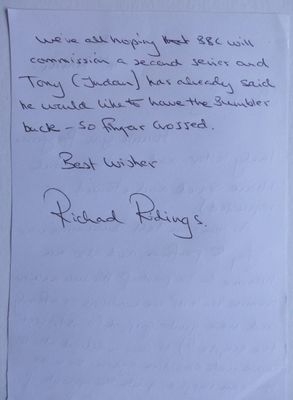 We're all hoping that BBC will
commission a second series and
Tony (Jordan) has already said
he would like to have the Bumbler
back - so finger crossed.
Best wishes
Richard Ridings.